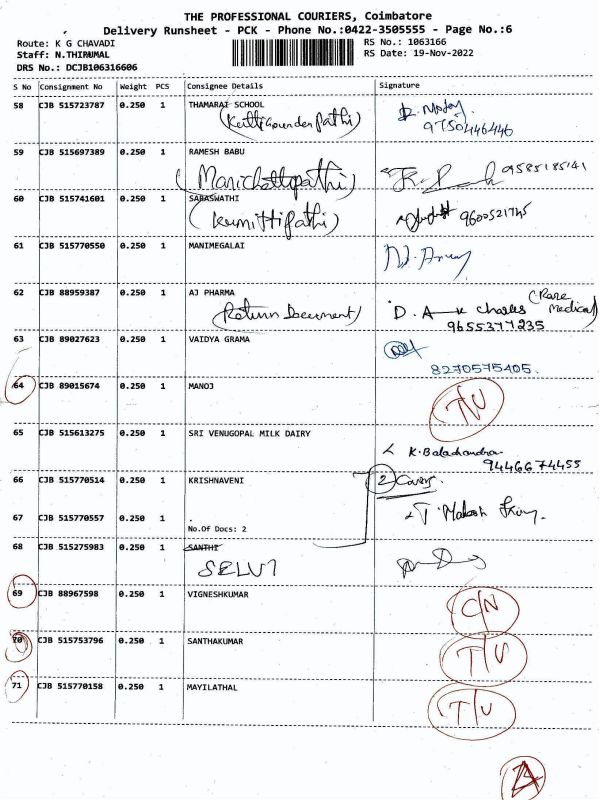 THE PROFESSIONAL COURIERS, Coimbatore
Delivery Runsheet - PCK - Phone No.:0422-3505555 - Page No.:6
Route: K G CHAVADI
RS No.: 1063166
Staff: N.THIRUMAL
RS Date: 19-Nov-2022
DRS No.: DCJB106316606
S No Consignment No Weight PCS Consignee Details Signature
58 CJB 515723787 0.250 1 THAMARAI SCHOOL
(KettiGounder Pathi)
9750446446
59 CJB 515697389 0.250 1 RAMESH BABU
9585185141
60 CJB 515741601 0.250 1 SARASWATHI
(Kumittipathi) 9600521745
61 CJB 515770550 0.250 1 MANIMEGALAI
62 CJB 88959387 0.250 1 AJ PHARMA
(Rare Medical)
(Return Document) D. A Charles
9655377235
63 CJB 89027623 0.250 1 VAIDYA GRAMA
8270575405.
64 CJB 89015674 0.250 1 MANOJ T/U
65 CJB 515613275 0.250 1 SRI VENUGOPAL MILK DAIRY
K. Balachandra
9446674455
66 CJB 515770514 0.250 1 KRISHNAVENI 2 Covers.
67 CJB 515770557 0.250 1
No.Of Docs: 2
68 CJB 515275983 0.250 1 SANTHI
SELVI
69 CJB 88967598 0.250 1 VIGNESHKUMAR C/N
70 CJB 515753796 0.250 1 SANTHAKUMAR T/U
71 CJB 515770158 0.250 1 MAYILATHAL T/U